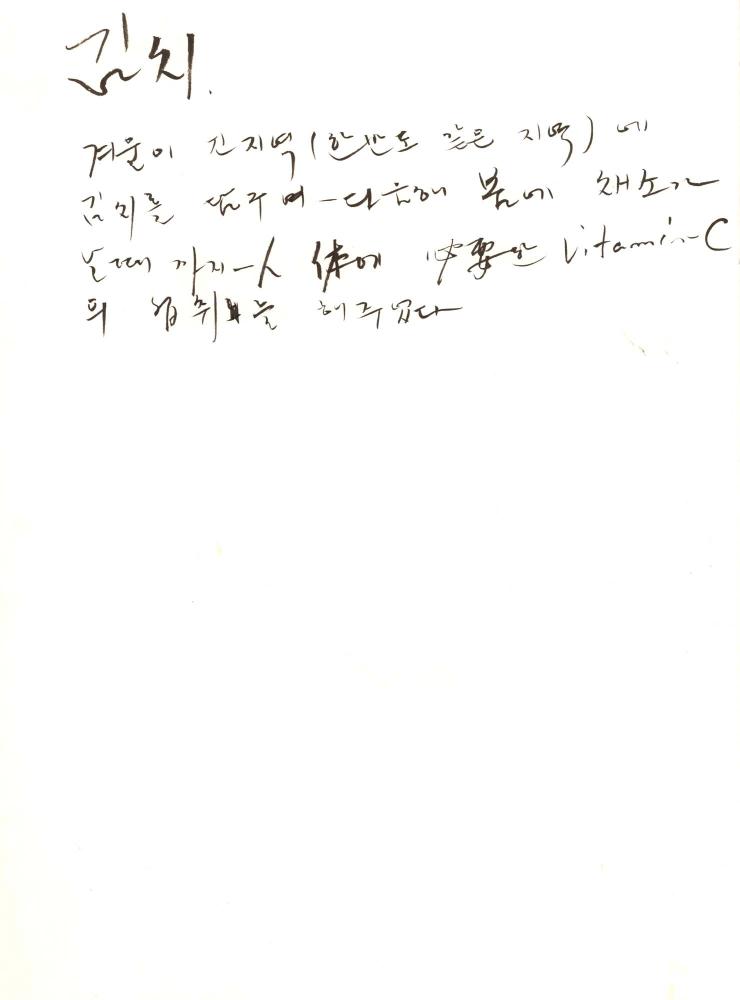 김치.
겨울이 긴지역(한반도 같은 지역)에
김치를 담구며 - 다음해 봄에 채소가
날때 까지 - 人体에 必要한 Vitamin-C
의 섭취를 해주었다